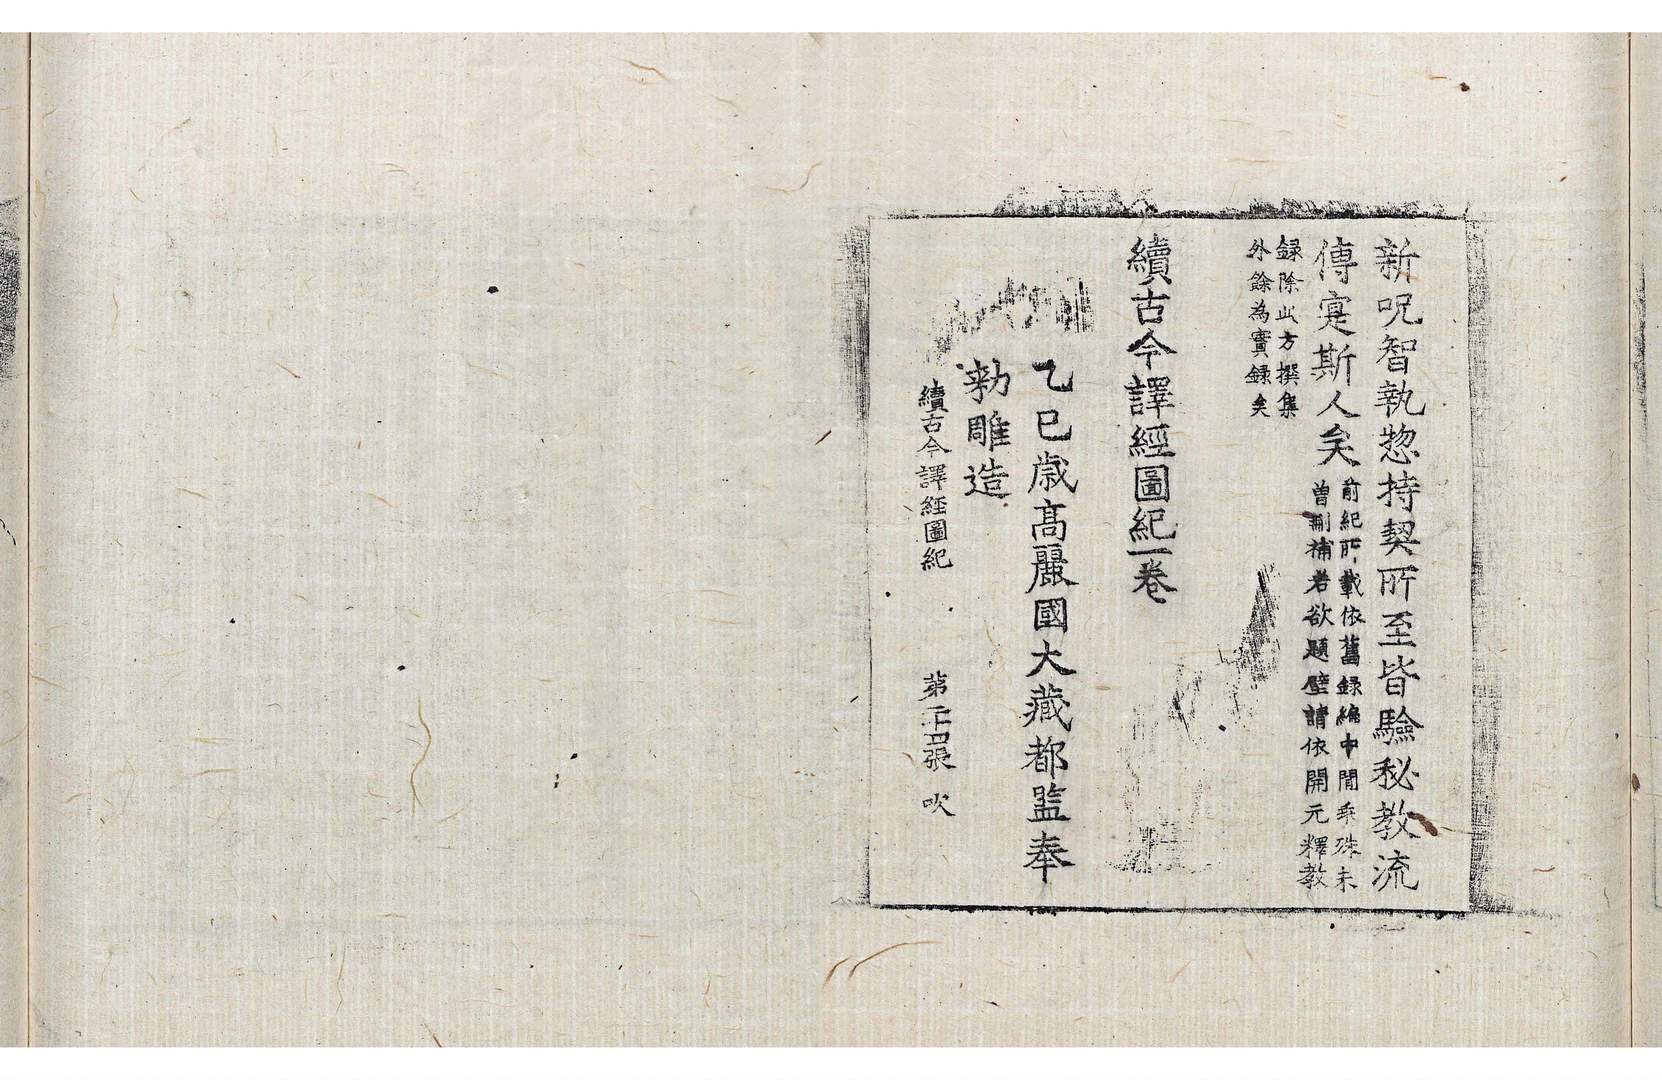 新呪智執惣持契所至皆驗秘教流
傳寔斯人矣
前紀所載依舊録編中間乖殊未
曾刪補若欲題壁請依開元釋教
録除此方撰集
外餘為實録矣
續古今譯經圖紀一卷
乙巳歳髙麗國大藏都監奉
勅雕造
續古今譯經圖紀 第二十四張 吹